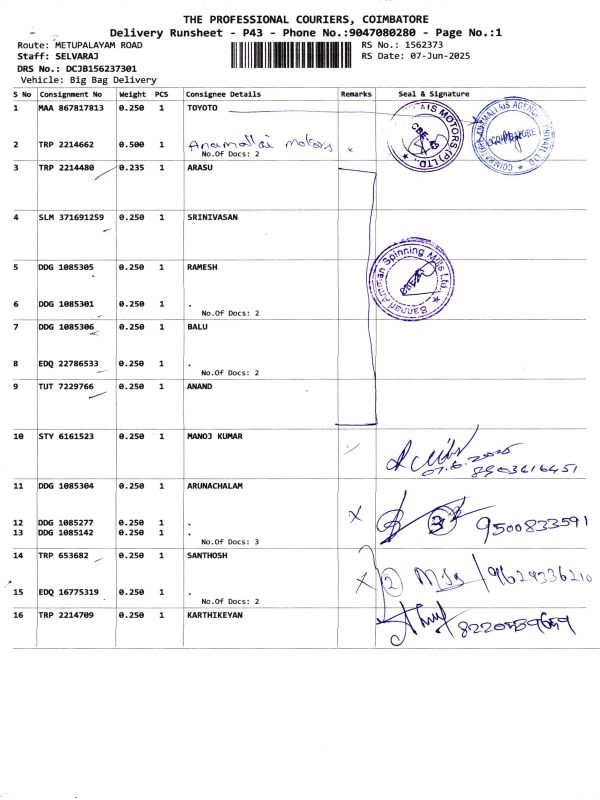 THE PROFESSIONAL COURIERS, COIMBATORE
Delivery Runsheet - P43 - Phone No.:9047080280 - Page No.:1
Route: METUPALAYAM ROAD RS No.: 1562373
Staff: SELVARAJ RS Date: 07-Jun-2025
DRS No.: DCJB156237301
Vehicle: Big Bag Delivery
S No Consignment No Weight PCS Consignee Details Remarks Seal & Signature
1 MAA 867817813 0.250 1 TOYOTO
2 TRP 2214662 0.500 1 Anamallai Motors
No.Of Docs: 2
3 TRP 2214480 0.235 1 ARASU
4 SLM 371691259 0.250 1 SRINIVASAN
Bannari Amman Spinning Mills Ltd.
5 DDG 1085305 0.250 1 RAMESH
6 DDG 1085301 0.250 1 .
No.Of Docs: 2
7 DDG 1085306 0.250 1 BALU
8 EDQ 22786533 0.250 1 .
No.Of Docs: 2
9 TUT 7229766 0.250 1 ANAND
10 STY 6161523 0.250 1 MANOJ KUMAR
8903616451
11 DDG 1085304 0.250 1 ARUNACHALAM
12 DDG 1085277 0.250 1 . X 3 9500833591
13 DDG 1085142 0.250 1 .
No.Of Docs: 3
14 TRP 653682 0.250 1 SANTHOSH
X 2 9629336210
15 EDQ 16775319 0.250 1 .
No.Of Docs: 2
16 TRP 2214709 0.250 1 KARTHIKEYAN